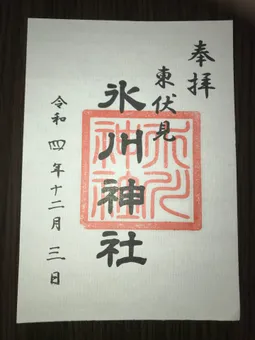 奉拝
東伏見
氷川神社
令和四年十二月三日
氷川
神社